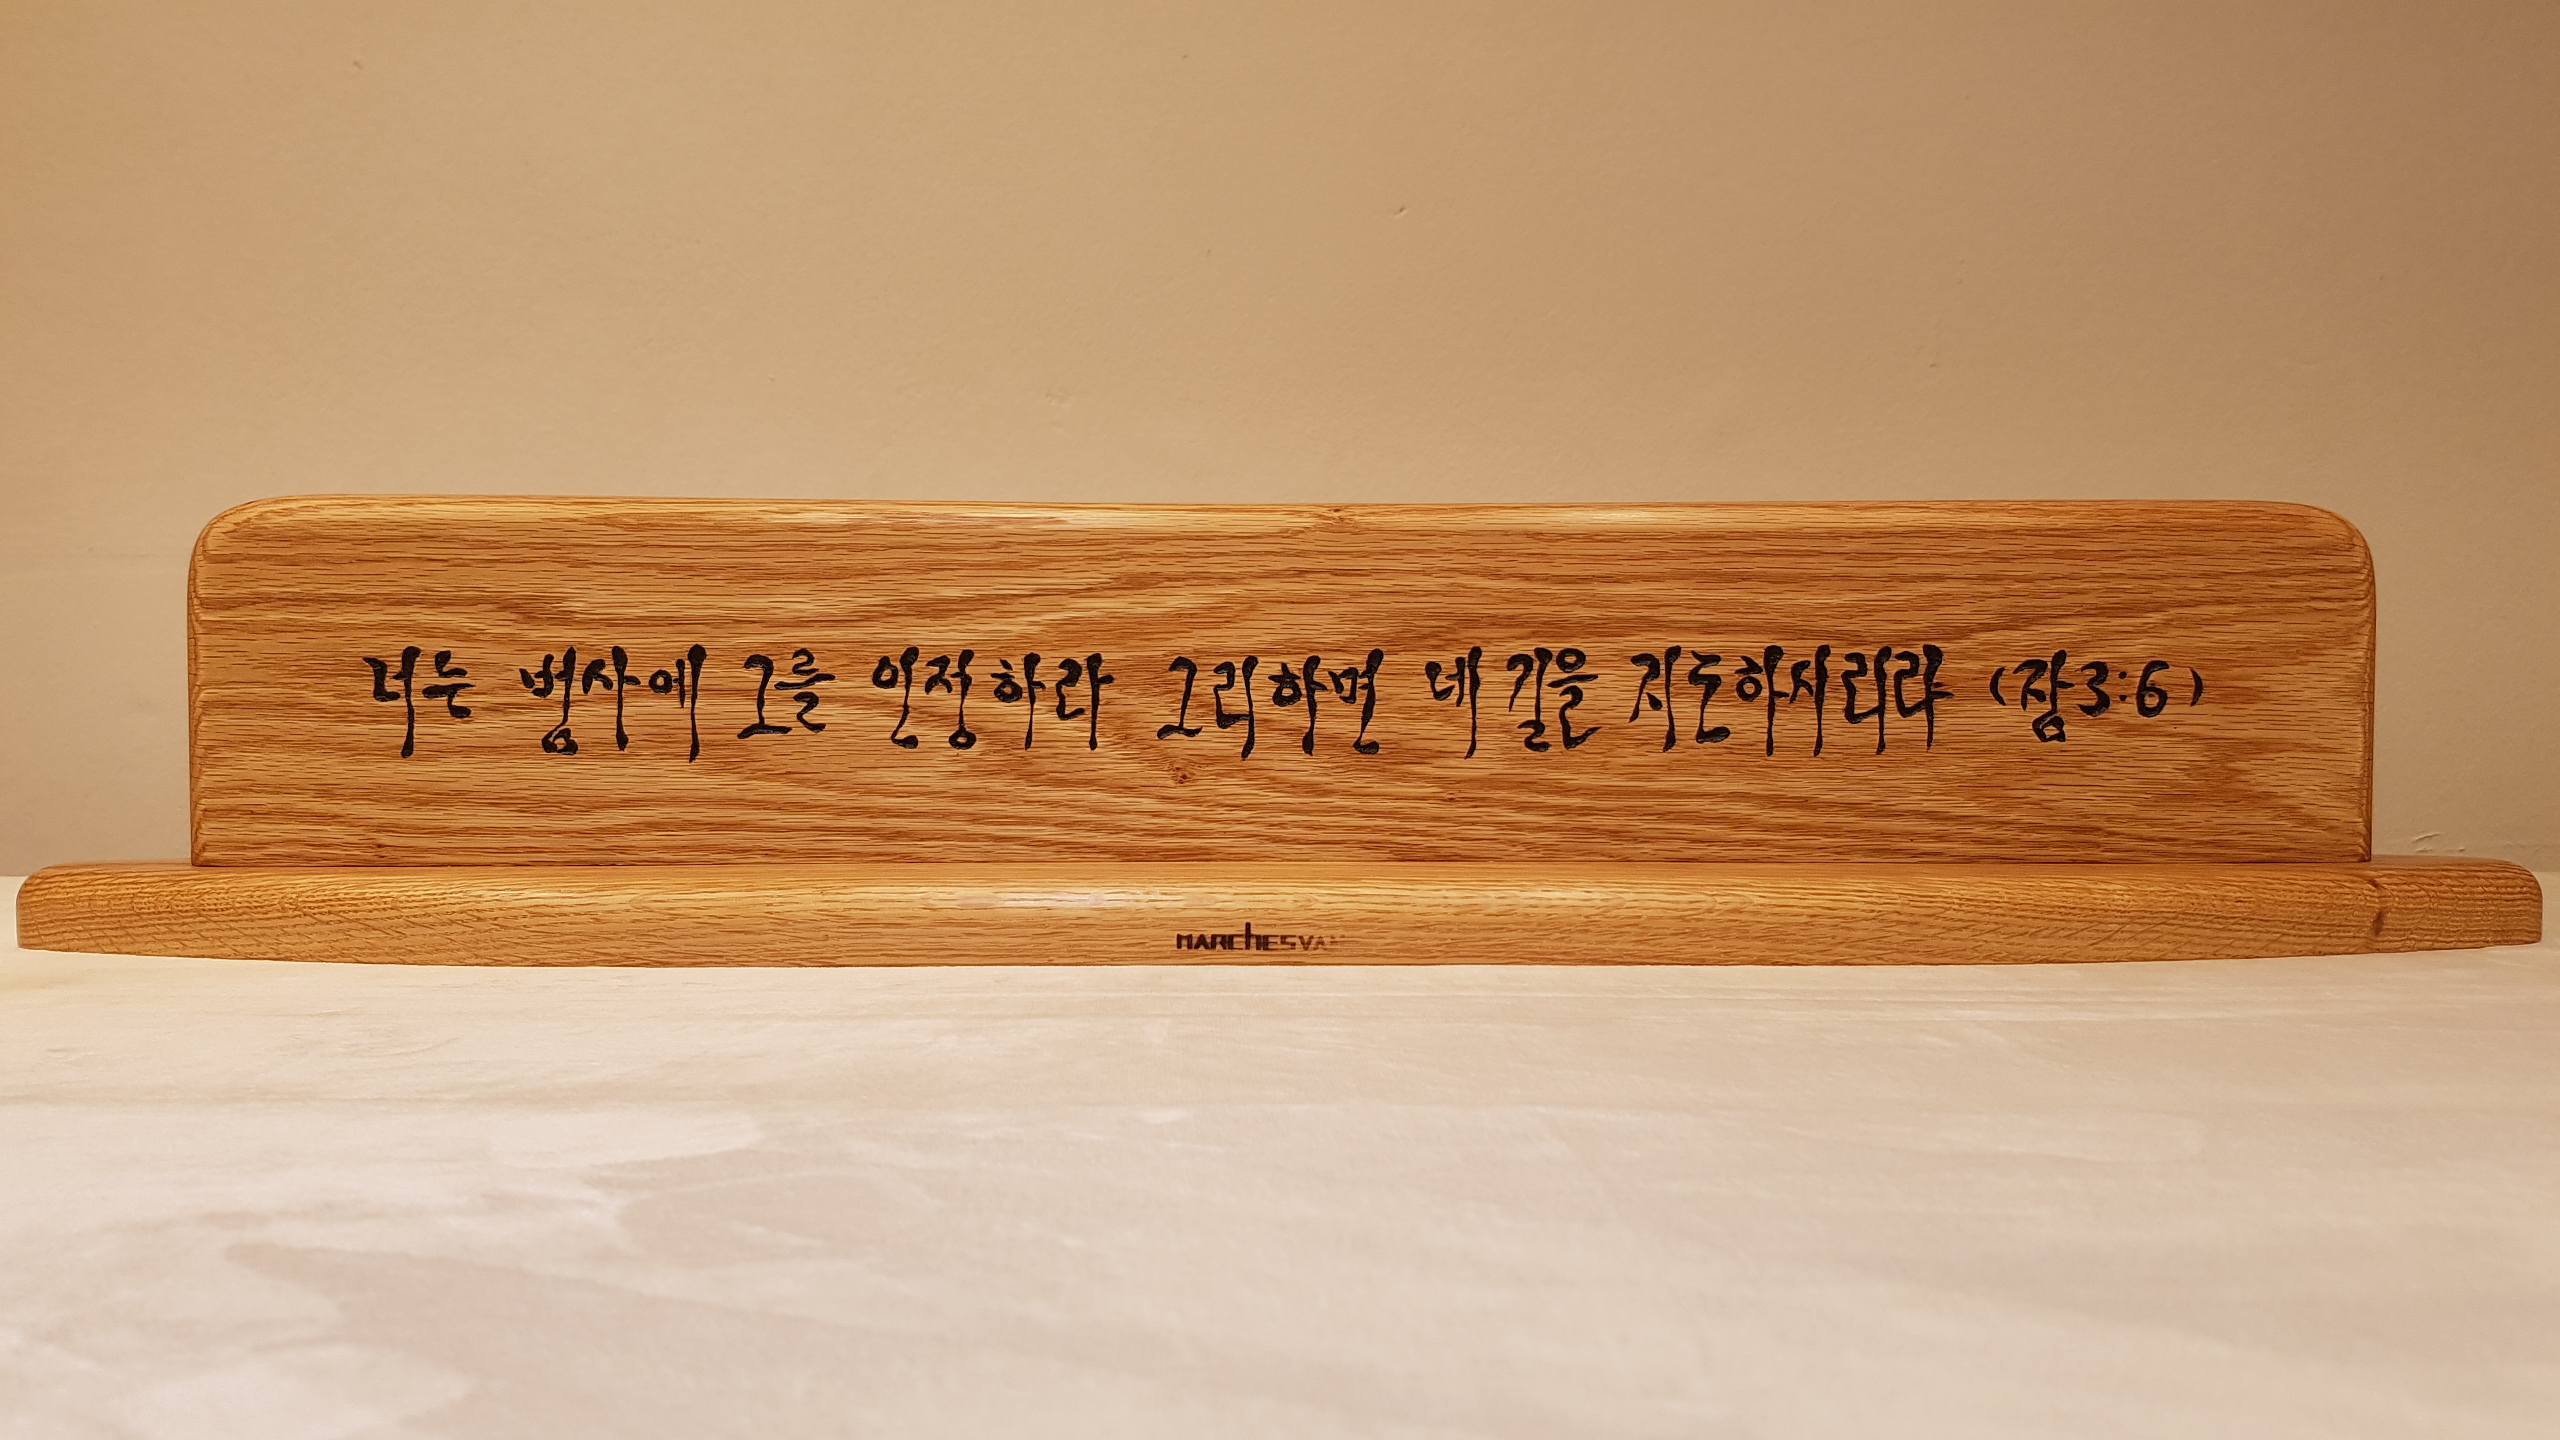 너는 범사에 그를 인정하라 그리하면 네 길을 지도하시리라 (잠3:6)
MARCHESVAN